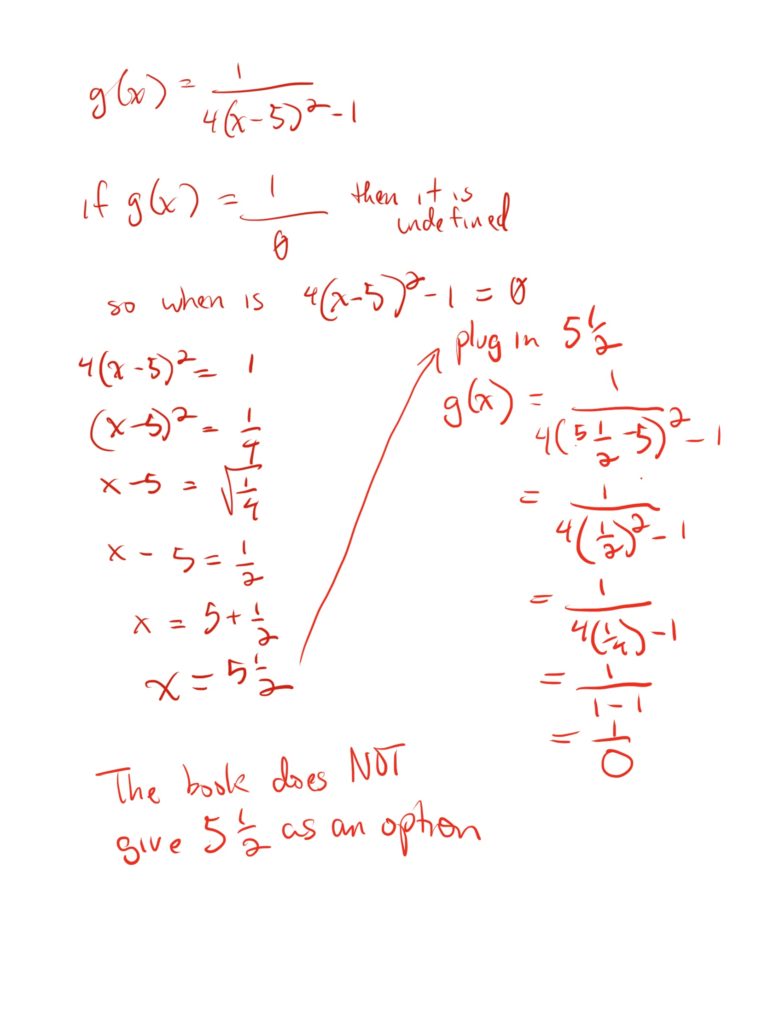 g(x) = 1/(4(x-5)²-1)
if g(x) = 1/0 then it is undefined
so when is 4(x-5)²-1 = 0
4(x-5)² = 1
(x-5)² = 1/4
x-5 = √(1/4)
x - 5 = 1/2
x = 5 + 1/2
x = 5 1/2
plug in 5 1/2
g(x) = 1/(4(5 1/2 -5)²-1)
= 1/(4(1/2)²-1)
= 1/(4(1/4)-1)
= 1/(1-1)
= 1/0
The book does NOT
give 5 1/2 as an option